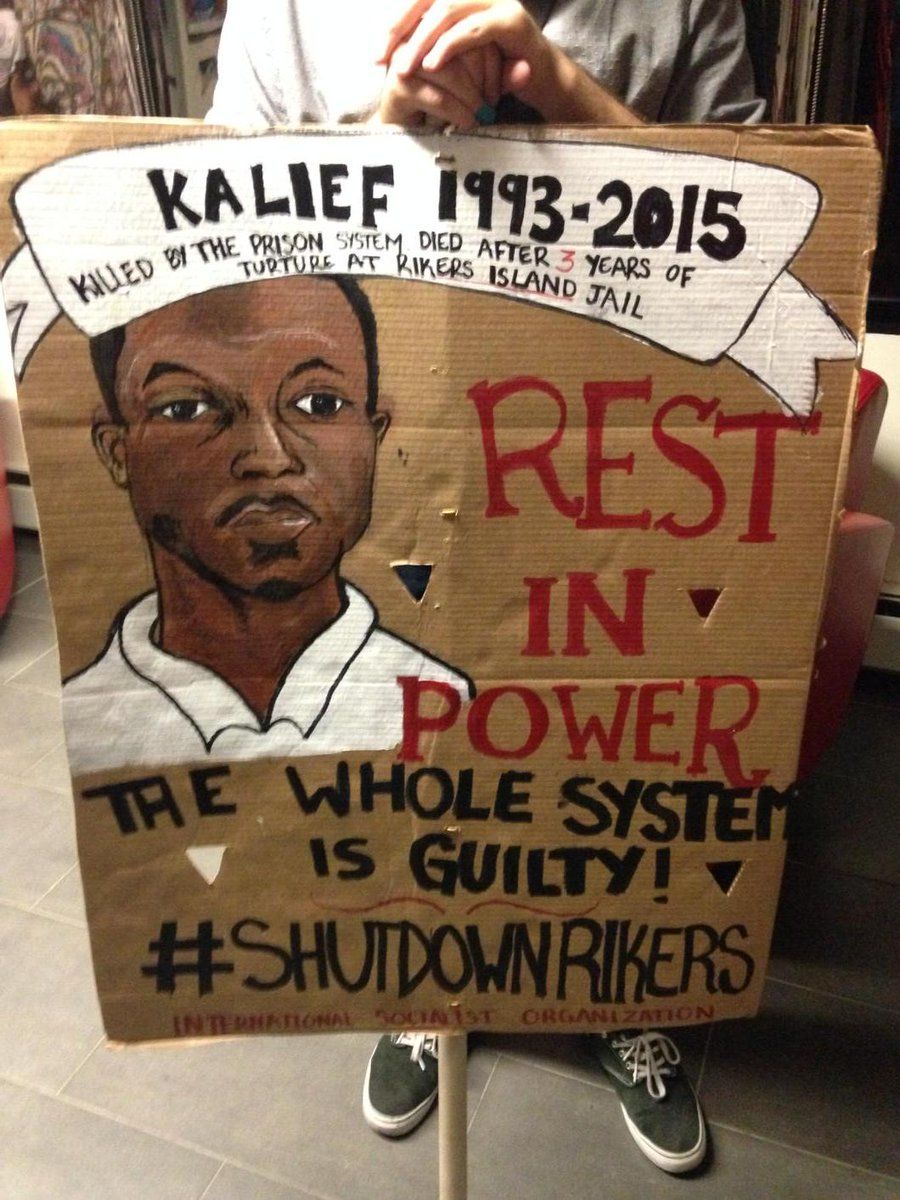 KALIEF 1993-2015
KILLED BY THE PRISON SYSTEM DIED AFTER 3 YEARS OF
TURTURE AT RIKERS ISLAND JAIL
REST
IN
POWER
THE WHOLE SYSTEM
IS GUILTY!
#SHUTDOWNRIKERS
INTERNATIONAL SOCIALIST ORGANIZATION